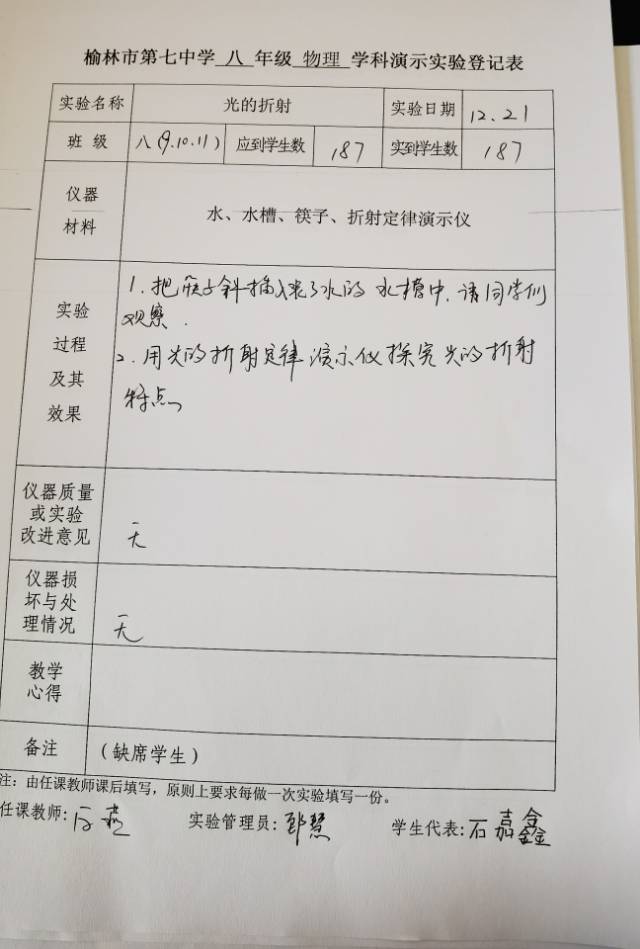 榆林市第七中学 八 年级 物理 学科演示实验登记表
实验名称 光的折射 实验日期 12.21
班 级 八(9.10.11) 应到学生数 187 实到学生数 187
仪器
材料
水、水槽、筷子、折射定律演示仪
实验
过程
及其
效果
1.把筷子斜插入装了水的水槽中,请同学们
观察.
2.用光的折射定律演示仪探究光的折射
特点
仪器质量
或实验
改进意见
无
仪器损
坏与处
理情况
无
教学
心得
备注 (缺席学生)
注:由任课教师课后填写,原则上要求每做一次实验填写一份。
任课教师: 实验管理员: 慧 学生代表:石嘉鑫